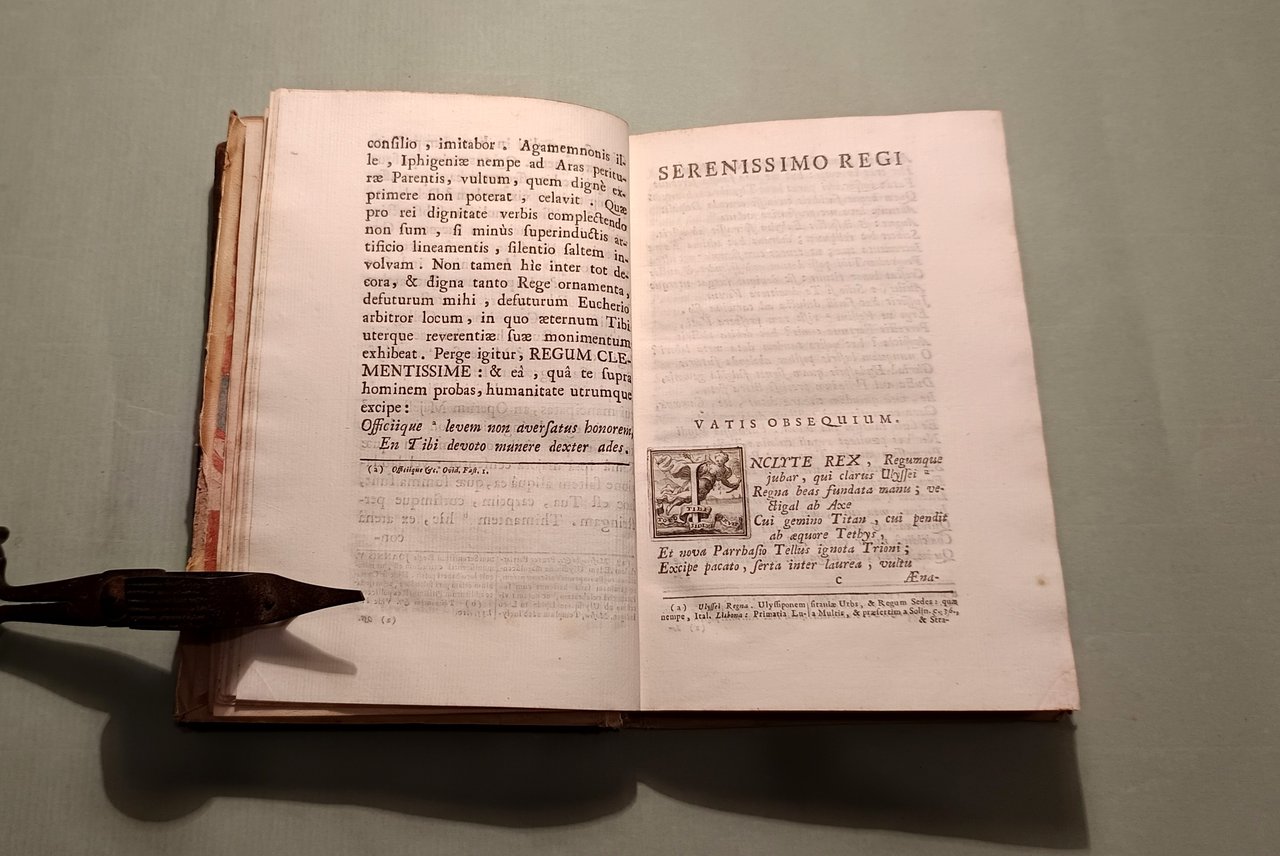 conſilio , imitabor . Agamemnonis il-
le , Iphigeniæ nempe ad Aras peritu-
ræ Parentis, vultum, quem dignè ex-
primere non poterat , celavit . Quæ
pro rei dignitate verbis complectendo
non ſum , ſi minùs ſuperinductis ar-
tificio lineamentis , ſilentio ſaltem in-
volvam . Non tamen hìc inter tot de-
cora, & digna tanto Rege ornamenta,
defuturum mihi , defuturum Eucherio
arbitror locum, in quo æternum Tibi
uterque reverentiæ ſuæ monimentum
exhibeat . Perge igitur, REGUM CLE-
MENTISSIME : & eâ , quâ te ſupra
hominem probas, humanitate utrumque
excipe :
Officiique ª levem non averſatus honorem,
En Tibi devoto munere dexter ades.
(a) Officiique &c. Ovid. Faſt. 1.
SERENISSIMO REGI
VATIS OBSEQUIUM.
INCLYTE REX , Regumque
jubar , qui clarus Ulyſſei ª
Regna beas fundata manu ; ve-
ctigal ab Axe
Cui gemino Titan , cui pendit
ab æquore Tethys ,
Et nova Parrhaſio Tellus ignota Trioni ;
Excipe pacato , ſerta inter laurea , vultu
c Æna-
(a) Ulyſſei Regna. Ulyſſiponem Urbs, & Regum Sedes: quæ
nempe, Ital. Lisbona: Primatia Multis, & præſertim a Solin.
& Stra-